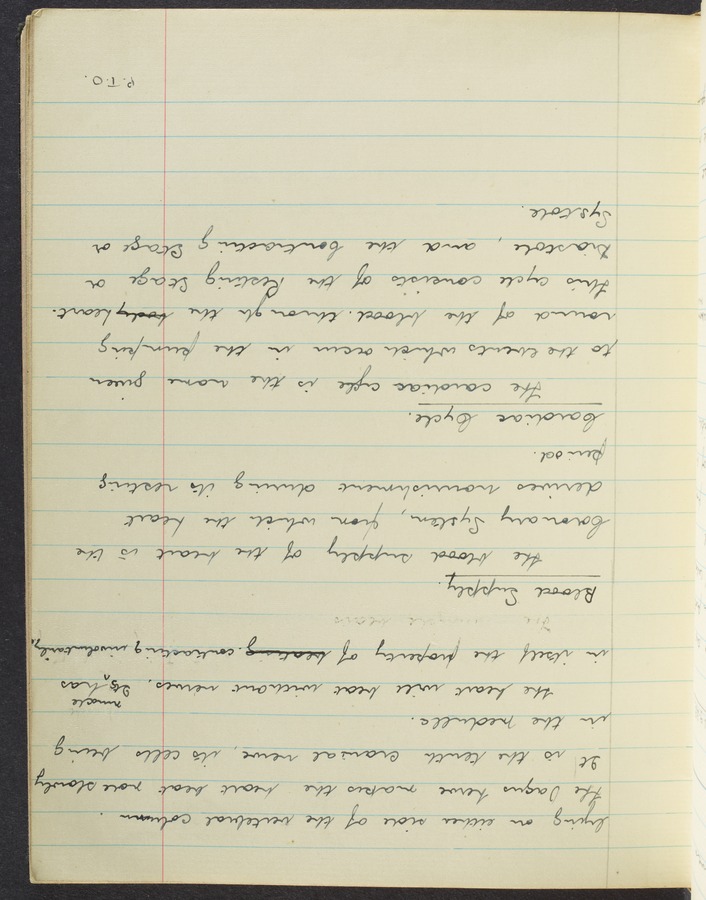 lying on either side of the vertebral column.
The Vagus nerve makes the heart beat more slowly
It is the tenth cranial nerve, its cells being
in the medulla.
The heart will beat without nerves. Its muscle has
in itself the property of beating contracting involuntarily.
Blood Supply.
The blood supply of the heart is the
Coronary System, from which the heart
derives nourishment during it's resting
period.
Cardiac Cycle.
The cardiac cycle is the name given
to the events which occur in the pumping
round of the blood. through the body heart.
This cycle consists of the Resting Stage or
Diastole, and the Contracting Stage or
Systole.
P.T.O.